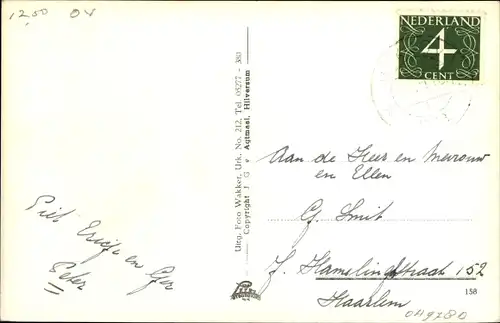 12,50 OV
NEDERLAND
4
CENT
Uitg. Foto Wakker, Urk. No. 212, Tel. 05277 - 380
Copyright J. G. v. Agtmaal, Hilversum
Aan de Heer en Mevrouw
en Ellen
G. Smit
J. Hamelinkstraat 152
Haarlem
Piet en Ger
Peter
158